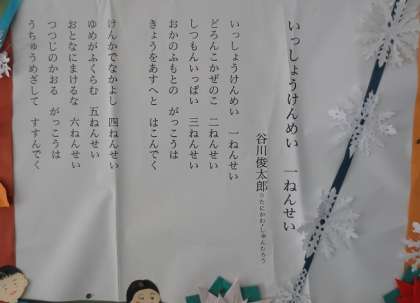 いっしょうけんめい　一ねんせい
谷川俊太郎（たにかわしゅんたろう
いっしょうけんめい　一ねんせい
どろんこかぜのこ　二ねんせい
しつもんいっぱい　三ねんせい
おかのふもとの　がっこうは
きょうをあすへと　はこんでく
けんかでなかよし　四ねんせい
ゆめがふくらむ　五ねんせい
おとなにまけるな　六ねんせい
つつじのかおる　がっこうは
うちゅうめざして　すすんでく